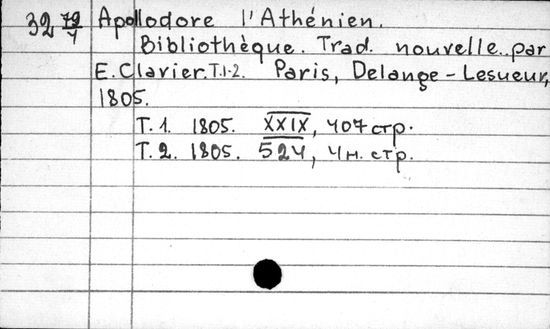 32 79/4 Apollodore l'Athénien.
Bibliothèque. Trad. nouvelle par
E. Clavier. T.1-2. Paris, Delange-Lesueur,
1805.
T. 1. 1805. XXIX, 407 стр.
T. 2. 1805. 524, 4 н. стр.